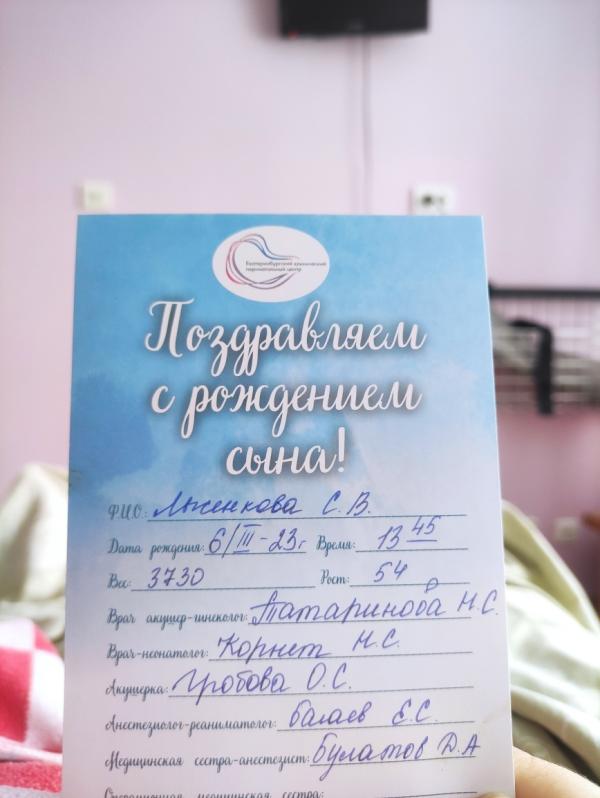 Екатеринбургский клинический
перинатальный центр
Поздравляем
с рождением
сына!
Ф.И.О.: С. В.
Дата рождения: 6/III-23г Время: 13 45
Вес: 3730 Рост: 54
Врач акушер-гинеколог: Татаринова Н.С.
Врач-неонатолог: Корнет Н.С.
Акушерка: Гробова О.С.
Анестезиолог-реаниматолог: Балаев Е.С.
Медицинская сестра-анестезист: Булатов Д.А
Операционная медицинская сестра: